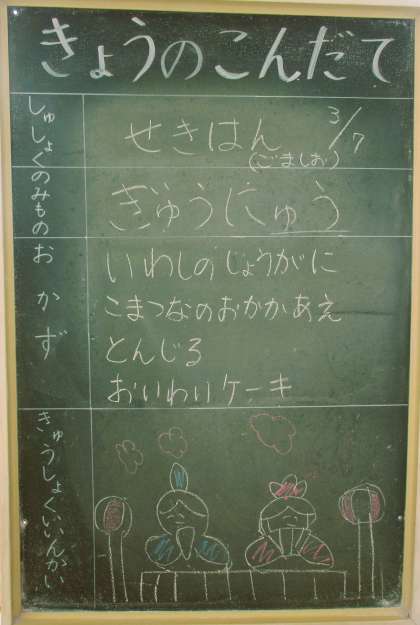 きょうのこんだて
しゅしょく
せきはん 3/7
(ごましお)
のみもの
ぎゅうにゅう
おかず
いわしのじょうがに
こまつなのおかかあえ
とんじる
おいわいケーキ
きゅうしょくいいんかい